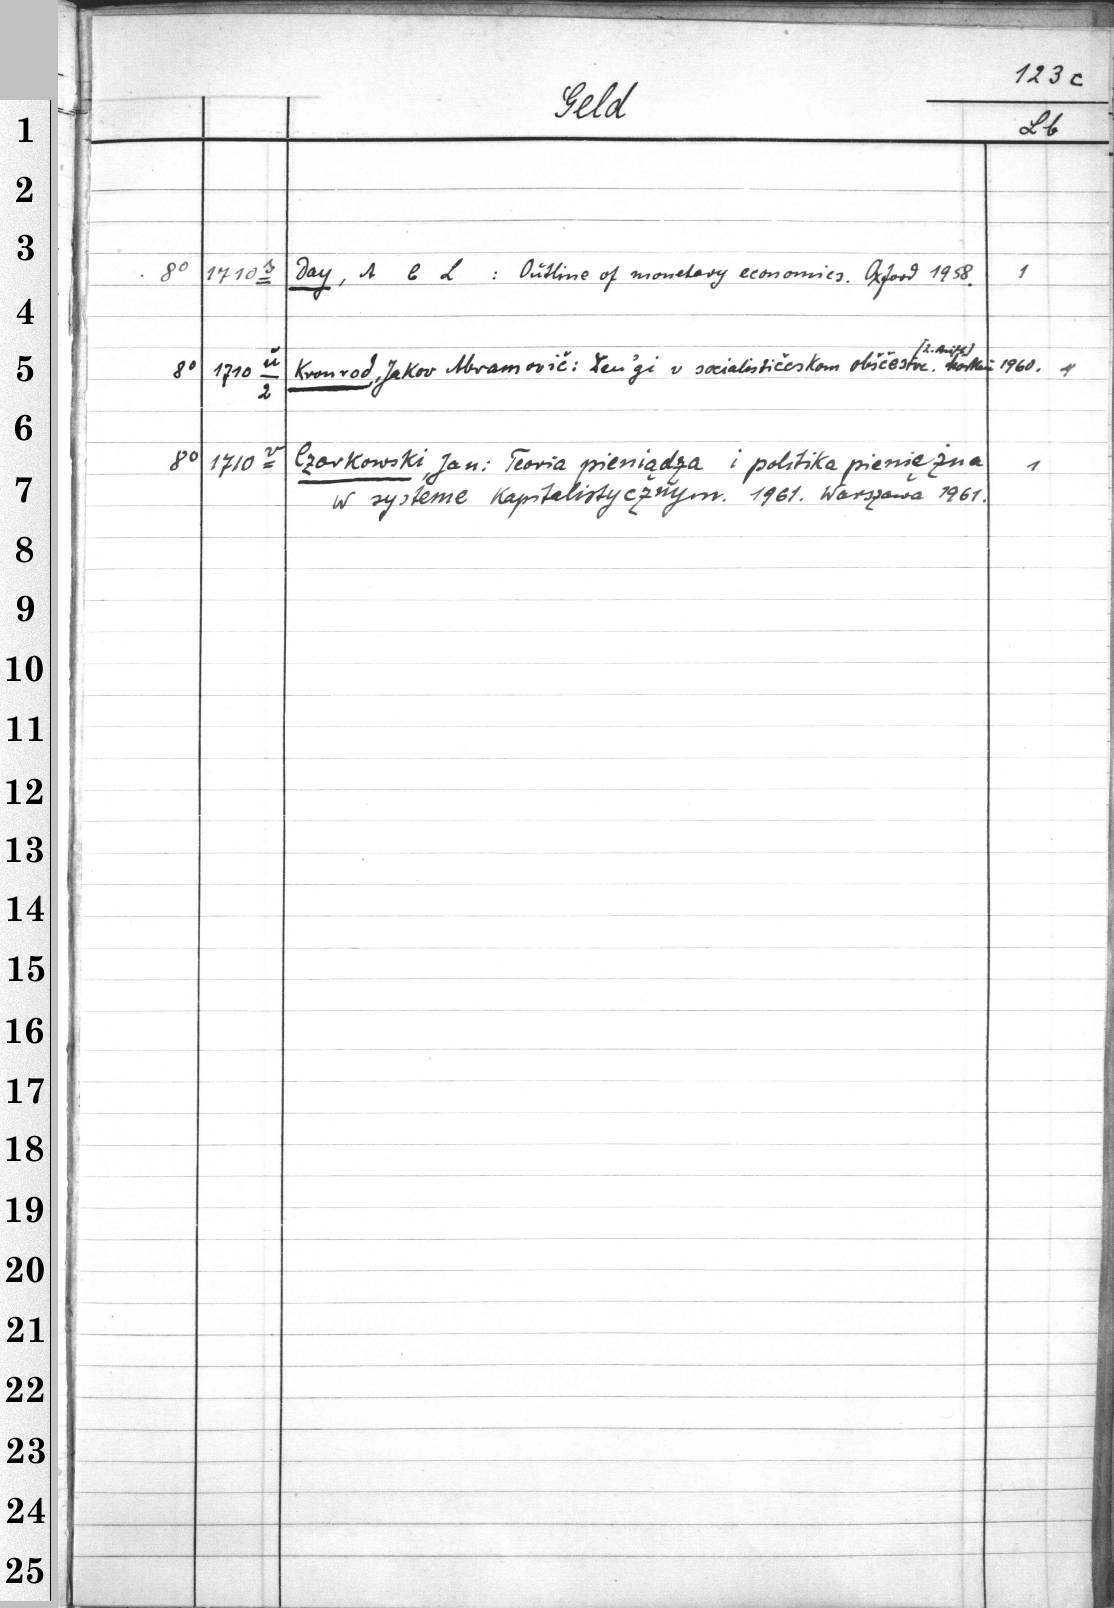 123c
Geld
Lb
1
2
3
8° 1710 s Day, A C L : Outline of monetary economics. Oxford 1958. 1
4
[2. Aufl.]
5
8° 1710 ŭ/2 Kronrod, Jakov Abramovič: Den'gi v socialističeskom obščestve. Moskau 1960. 1
6
8° 1710 v Czarkowski, Jan: Teoria pieniądza i politika pieniężna 1
7
w systeme kapitalistycznym. 1961. Warszawa 1961.
8
9
10
11
12
13
14
15
16
17
18
19
20
21
22
23
24
25